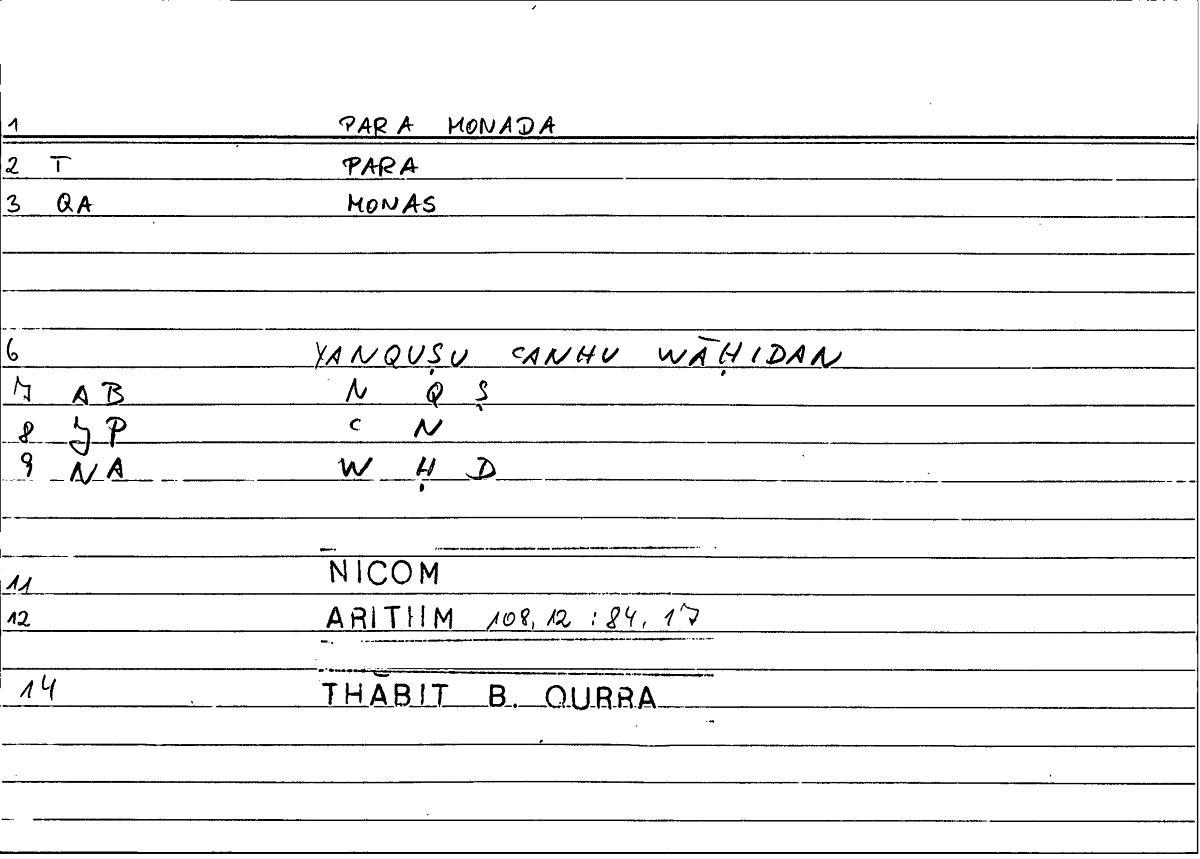 1 PARA MONADA
2 T PARA
3 QA MONAS
6 YANQUṢU CANHU WĀḤIDAN
7 AB N Q Ṣ
8 JP C N
9 NA W Ḥ D
11 NICOM
12 ARITHM 108,12 : 84,17
14 THĀBIT B. QURRA